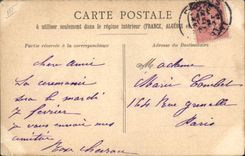 CARTE POSTALE
à utiliser seulement dans le régime intérieur (FRANCE, ALGÉRIE
Partie réservée à la correspondance
Adresse du Destinataire
chère amie
La ceremonie
sera le mardi
7 fevrier
je vous envoie mes
amitiés
Madame
Marie Combet
164 Rue grenelle
Paris